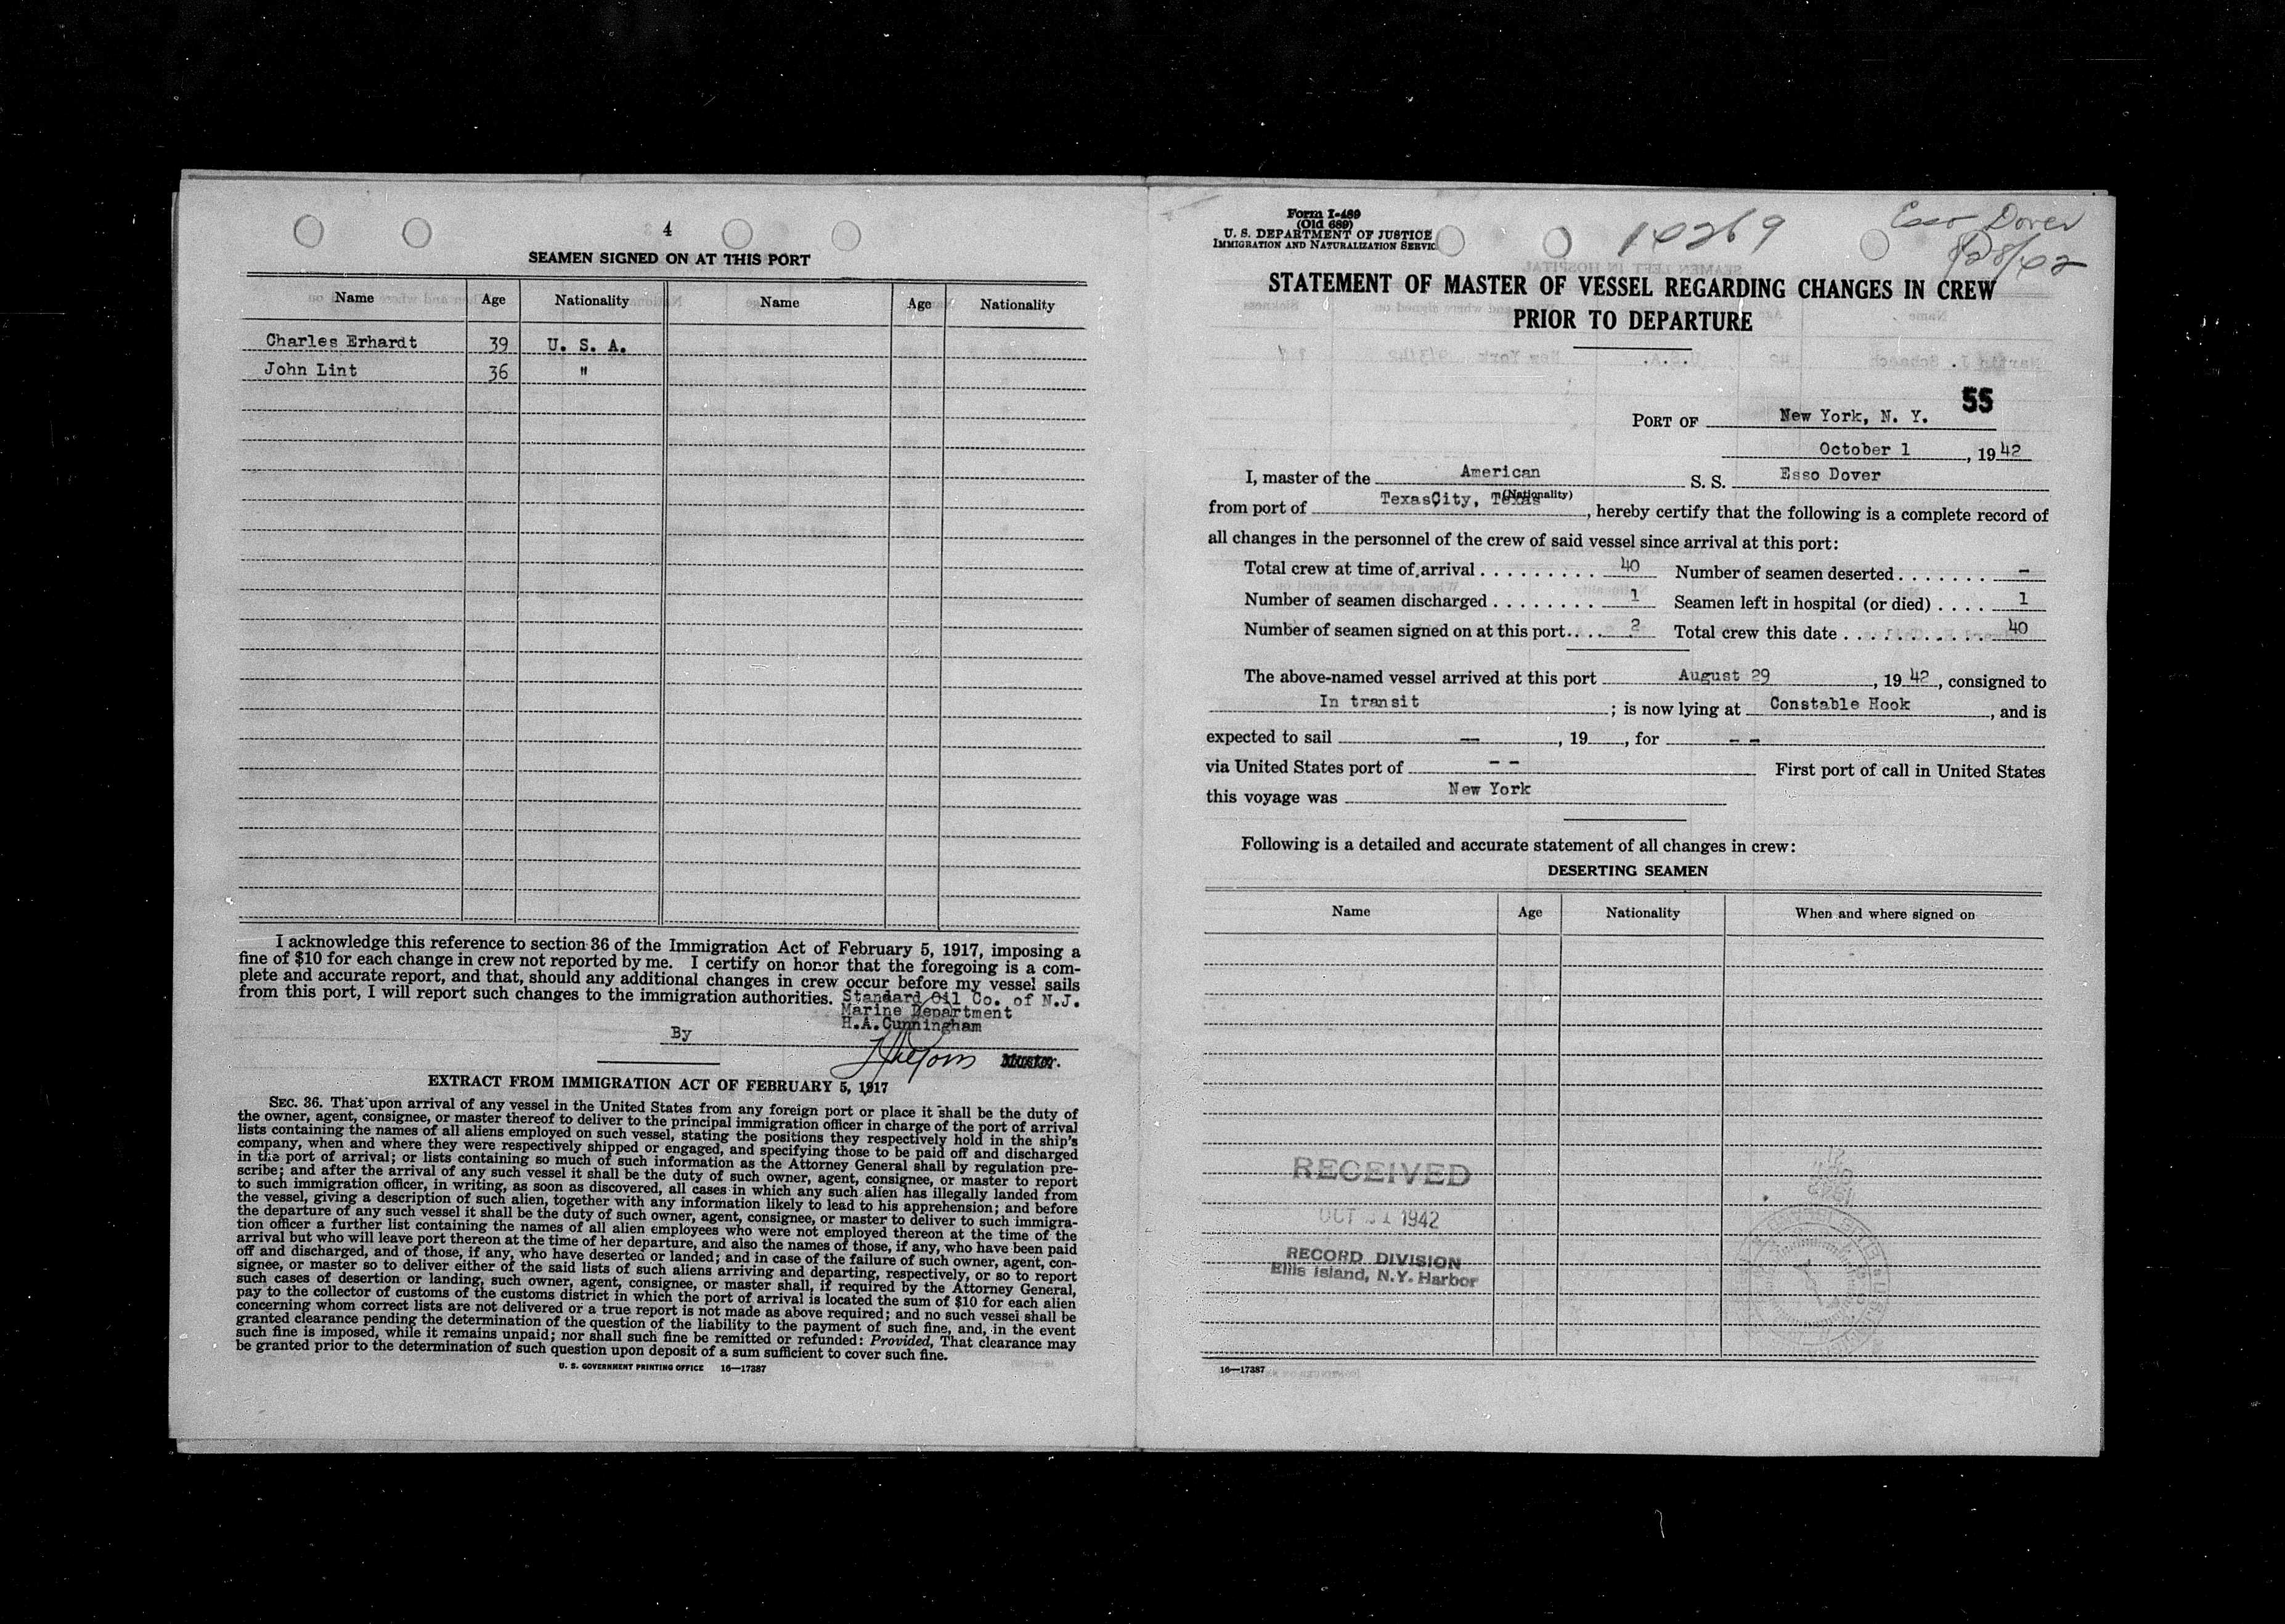 4
SEAMEN SIGNED ON AT THIS PORT
Name Age Nationality Name Age Nationality
Charles Erhardt 39 U. S. A.
John Lint 36 "
I acknowledge this reference to section 36 of the Immigration Act of February 5, 1917, imposing a
fine of $10 for each change in crew not reported by me. I certify on honor that the foregoing is a com-
plete and accurate report, and that, should any additional changes in crew occur before my vessel sails
from this port, I will report such changes to the immigration authorities. Standard Oil Co. of N.J.
Marine Department
H.A.Cunningham
By
Master.
EXTRACT FROM IMMIGRATION ACT OF FEBRUARY 5, 1917
SEC. 36. That upon arrival of any vessel in the United States from any foreign port or place it shall be the duty of
the owner, agent, consignee, or master thereof to deliver to the principal immigration officer in charge of the port of arrival
lists containing the names of all aliens employed on such vessel, stating the positions they respectively hold in the ship's
company, when and where they were respectively shipped or engaged, and specifying those to be paid off and discharged
in the port of arrival; or lists containing so much of such information as the Attorney General shall by regulation pre-
scribe; and after the arrival of any such vessel it shall be the duty of such owner, agent, consignee, or master to report
to such immigration officer, in writing, as soon as discovered, all cases in which any such alien has illegally landed from
the vessel, giving a description of such alien, together with any information likely to lead to his apprehension; and before
the departure of any such vessel it shall be the duty of such owner, agent, consignee, or master to deliver to such immigra-
tion officer a further list containing the names of all alien employees who were not employed thereon at the time of the
arrival but who will leave port thereon at the time of her departure, and also the names of those, if any, who have been paid
off and discharged, and of those, if any, who have deserted or landed; and in case of the failure of such owner, agent, con-
signee, or master so to deliver either of the said lists of such aliens arriving and departing, respectively, or so to report
such cases of desertion or landing, such owner, agent, consignee, or master shall, if required by the Attorney General,
pay to the collector of customs of the customs district in which the port of arrival is located the sum of $10 for each alien
concerning whom correct lists are not delivered or a true report is not made as above required; and no such vessel shall be
granted clearance pending the determination of the question of the liability to the payment of such fine, and, in the event
such fine is imposed, while it remains unpaid; nor shall such fine be remitted or refunded: Provided, That clearance may
be granted prior to the determination of such question upon deposit of a sum sufficient to cover such fine.
U. S. GOVERNMENT PRINTING OFFICE 16—17387
Form I-489
(Old 689)
U. S. DEPARTMENT OF JUSTICE
IMMIGRATION AND NATURALIZATION SERVIC
10269
Esso Dover
STATEMENT OF MASTER OF VESSEL REGARDING CHANGES IN CREW
PRIOR TO DEPARTURE
55
PORT OF New York, N. Y.
October 1, 1942
I, master of the American S. S. Esso Dover
(Nationality)
from port of TexasCity, Texas, hereby certify that the following is a complete record of
all changes in the personnel of the crew of said vessel since arrival at this port:
Total crew at time of arrival . . . . . . . . . 40 Number of seamen deserted . . . . . . . —
Number of seamen discharged . . . . . . . . 1 Seamen left in hospital (or died) . . . . 1
Number of seamen signed on at this port. . . . 2 Total crew this date . . . . . . . . . . . 40
The above-named vessel arrived at this port August 29, 1942, consigned to
In transit ; is now lying at Constable Hook, and is
expected to sail —, 19 , for – –
via United States port of – – First port of call in United States
this voyage was New York
Following is a detailed and accurate statement of all changes in crew:
DESERTING SEAMEN
Name Age Nationality When and where signed on
RECEIVED
OCT 1 1942
RECORD DIVISION
Ellis Island, N.Y. Harbor
16—17387